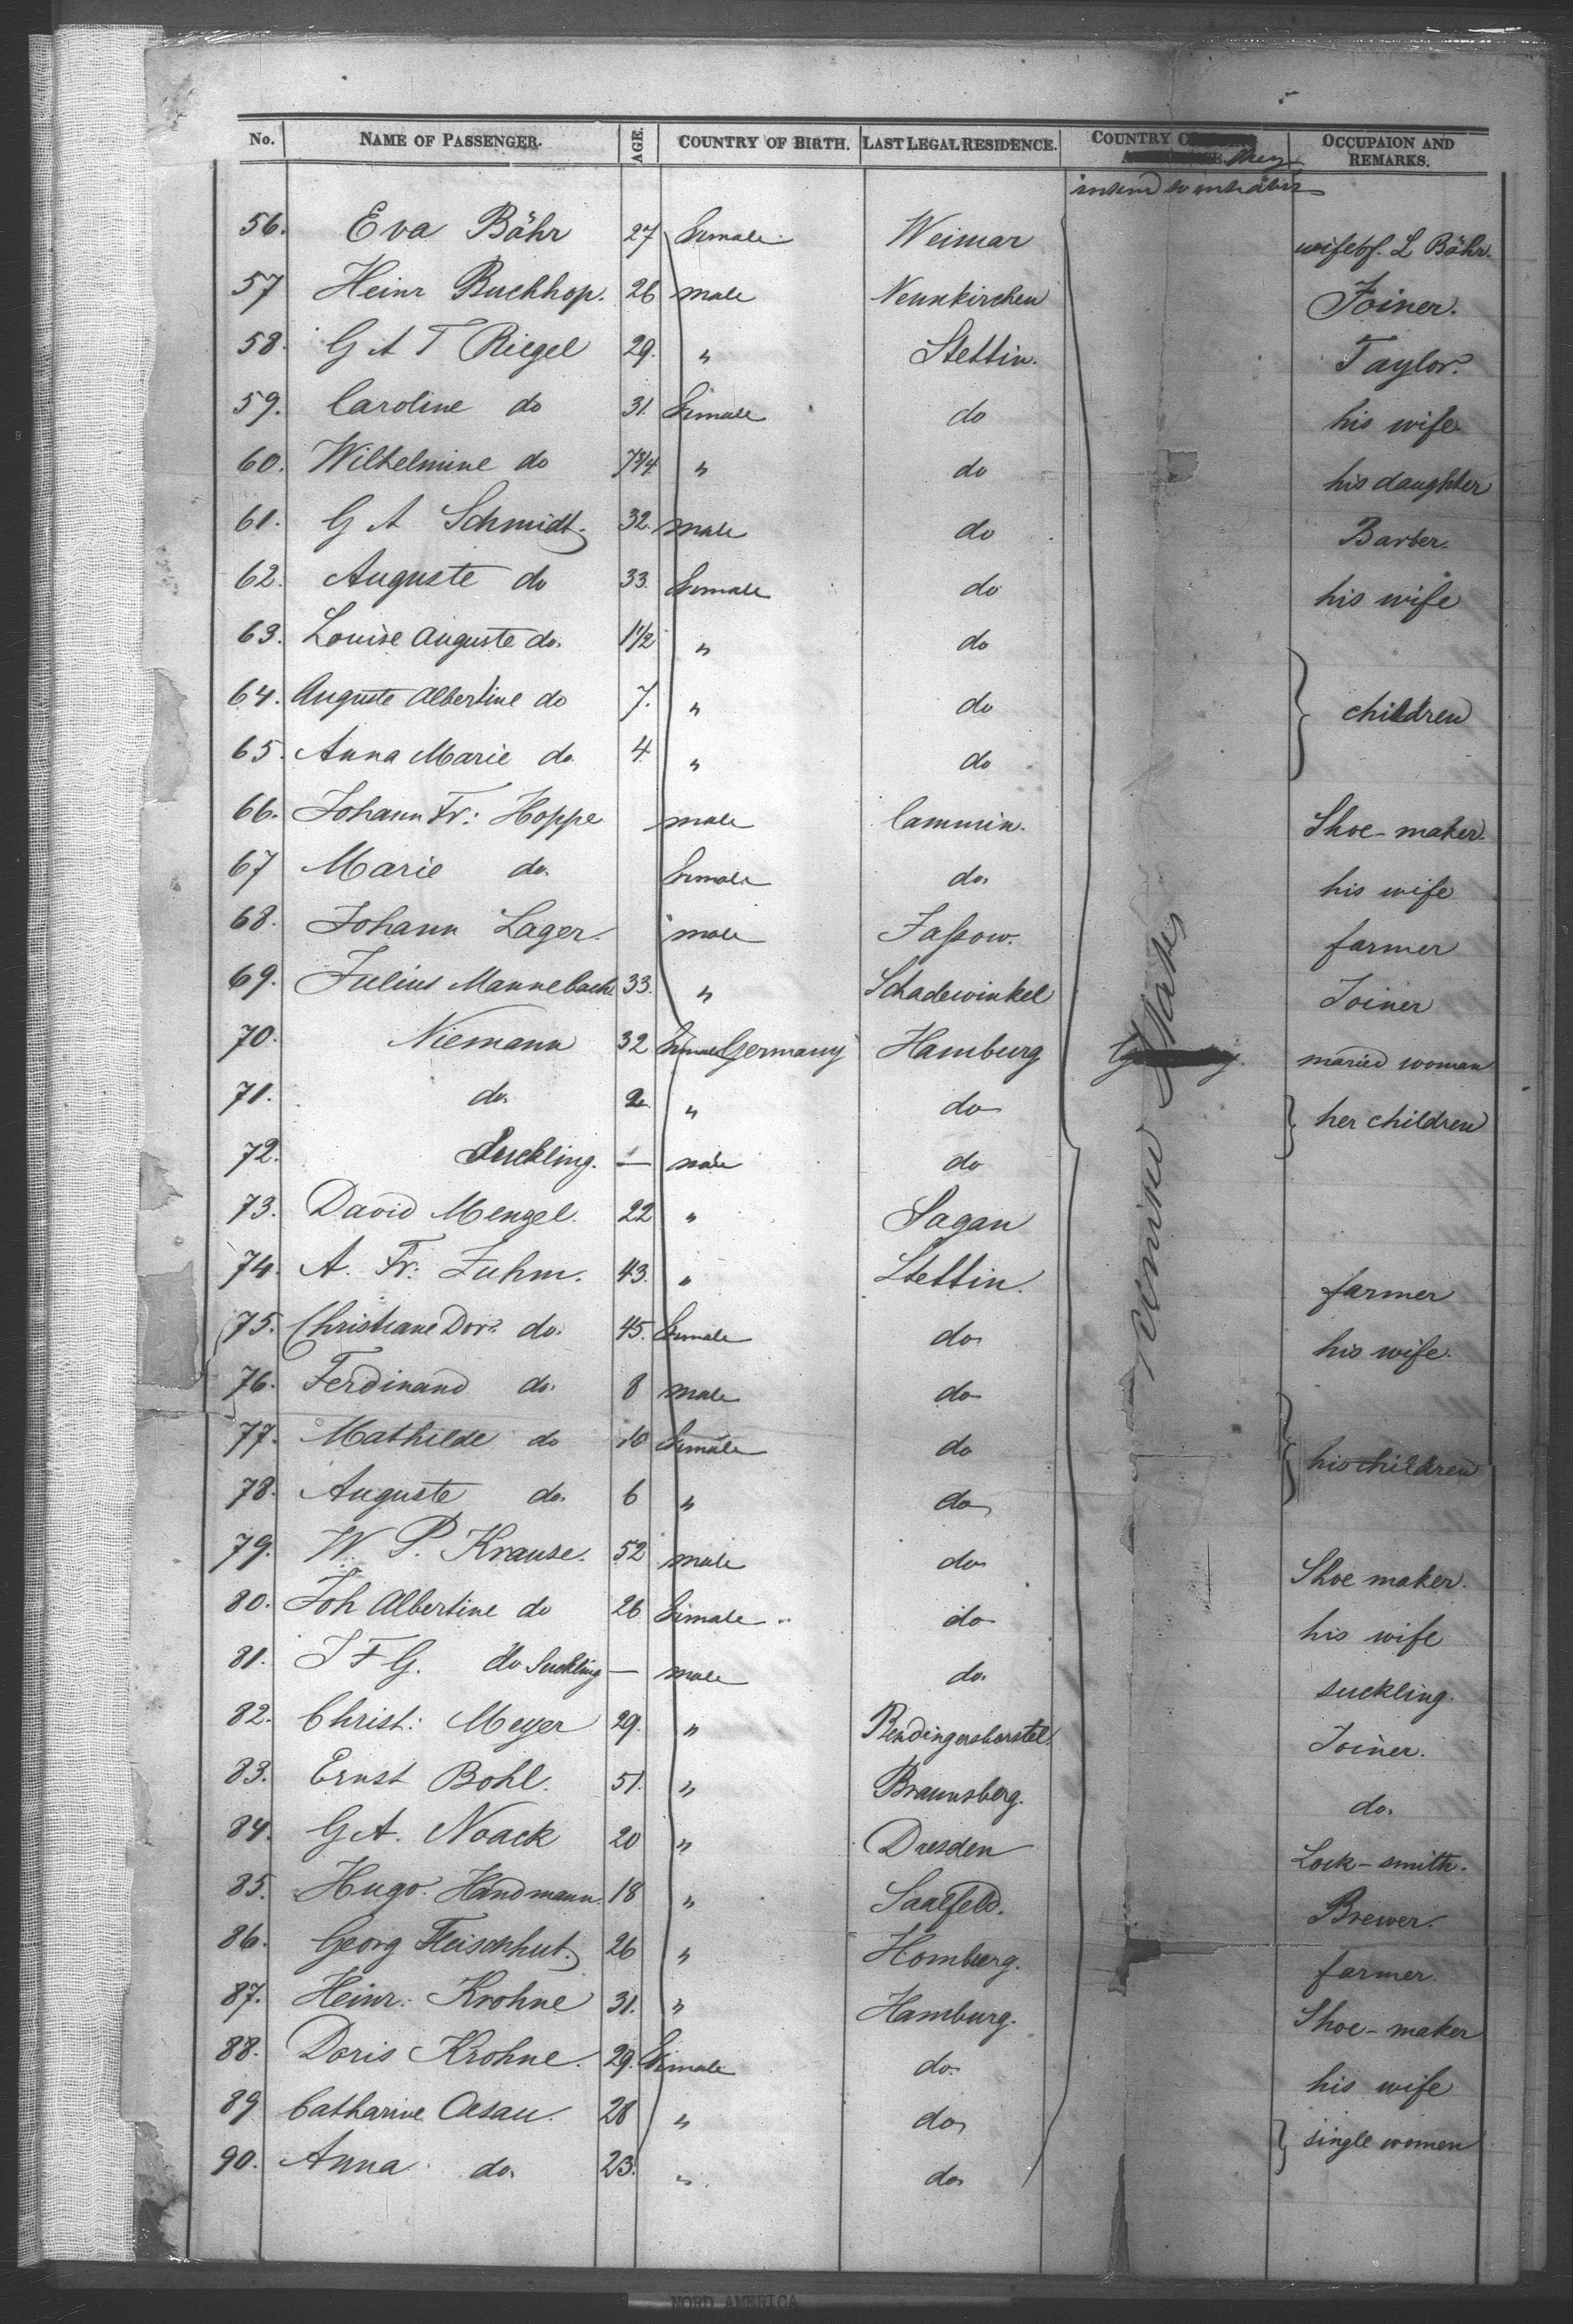 No. NAME OF PASSENGER. AGE. COUNTRY OF BIRTH. LAST LEGAL RESIDENCE. COUNTRY they OCCUPAION AND REMARKS.
intend to inhabit
56. Eva Bähr 27 female Weimar wife of. L Bähr.
57 Heinr Buchhop. 26 male Neunkirchen Joiner.
58. G A T Riegel 29. " Stettin. Taylor.
59. Caroline do 31. female do his wife
60. Wilhelmine do 7 3/4 " do his daughter
61. G A Schmidt. 32. male do Barber.
62. Auguste do 33. female do his wife
63. Louise Auguste do. 1 1/2 " do
64. Auguste Albertine do 7. " do children
65. Anna Marie do 4 " do
66. Johann Fr: Hoppe male Cammin. Shoe-maker.
67 Marie do. female do. his wife
68. Johann Lager. male Jaßow. farmer
69. Julius Mannebach 33. " Schadewinkel Joiner
70. Niemann 32 female Germany Hamburg maried woman
71. do. 2 " do her children
72. Suckling. — male do
73. David Menzel. 22 " Sagan
74. A. Fr: Zuhm. 43. " Stettin. farmer
75. Christiane Dor. do. 45. female do. his wife.
76. Ferdinand do. 8 male do
77. Mathilde do 10 female do his children
78. Auguste do. 6 " do
79. W. P. Krause. 52 male do Shoe maker.
80. Joh Albertine do 26 female do his wife
81. J F G. do Suckling — male do. suckling.
82. Christ: Meyer 29. " Bendingerborstel. Joiner.
83. Ernst Bohl. 51. " Braunsberg. do.
84. G A. Noack 20 " Dresden Lock-smith.
85. Hugo Handmann. 18 " Saalfeld. Brewer.
86. Georg Fleischhut. 26 " Homburg. farmer.
87. Heinr: Krohne 31. " Hamburg. Shoe-maker
88. Doris Krohne. 29. female do. his wife
89 Catharine Oesau. 28 " do. single women
90. Anna do. 23. " do.
United States
NORD AMERICA